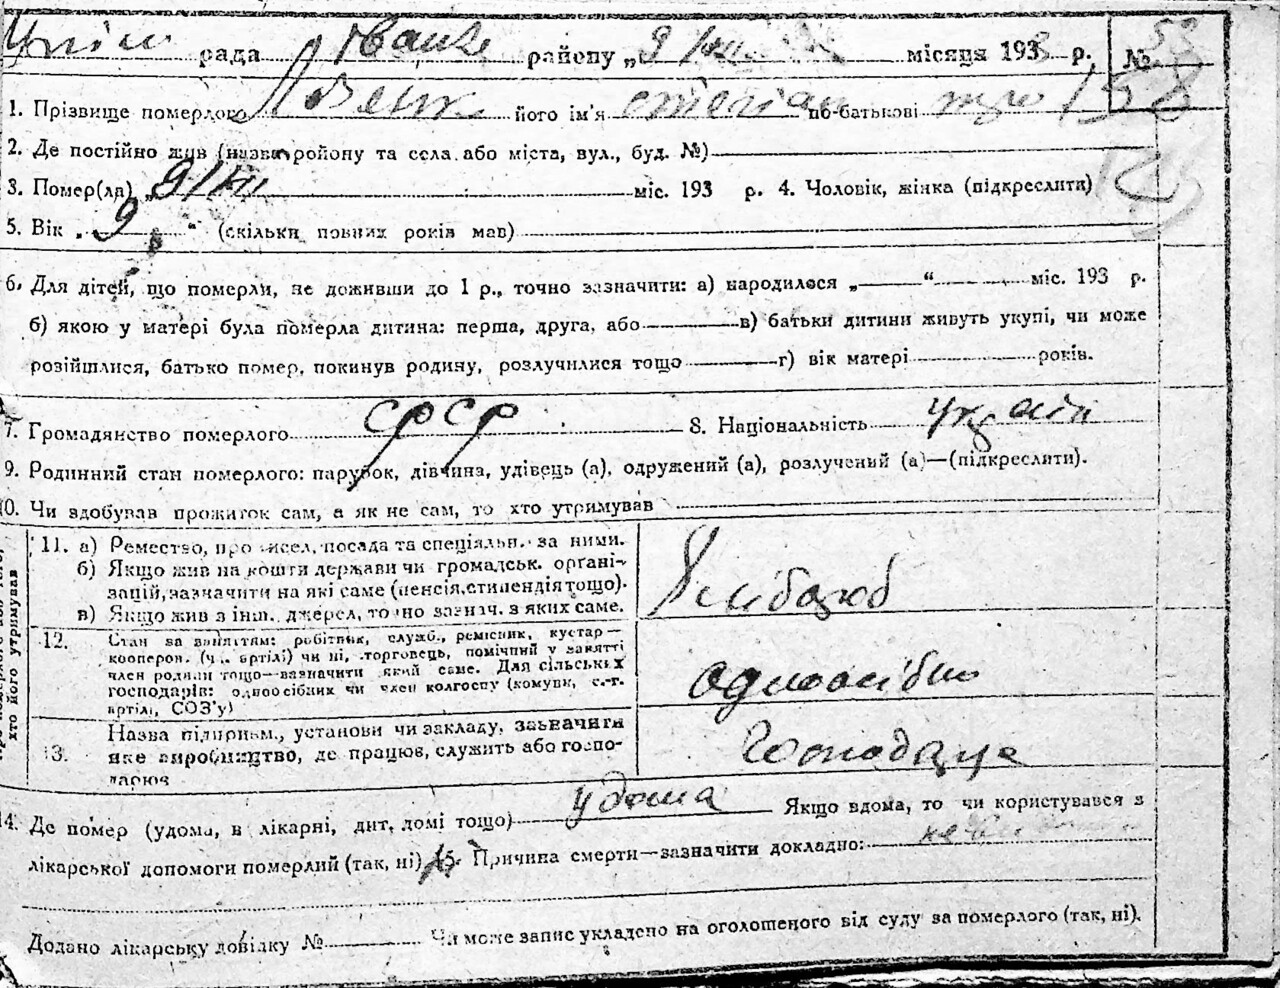 рада району „9/VIII місяця 193 р. №
1. Прізвище померлого його ім'я степан по-батькові
2. Де постійно жив (назва ройону та села або міста, вул., буд. №)
3. Помер(ла) „9/VIII міс. 193 р. 4. Чоловік, жінка (підкреслити)
5. Вік „ 9 “ (скільки повних років мав)
6. Для дітей, що померли, не доживши до 1 р., точно зазначити: а) народилося „ “ міс. 193 р.
б) якою у матері була померла дитина: перша, друга, або в) батьки дитини живуть укупі, чи може
розійшлися, батько помер, покинув родину, розлучилися тощо г) вік матері років.
7. Громадянство померлого СРСР 8. Національність україн
9. Родинний стан померлого: парубок, дівчина, удівець (а), одружений (а), розлучений (а)—(підкреслити).
10. Чи здобував прожиток сам, а як не сам, то хто утримував
хто його утримував
11. а) Ремество, промисел, посада та спеціальн. за ними.
б) Якщо жив на кошти держави чи громадськ. органі-
зацій, зазначити на які саме (пенсія, стипендія тощо).
в) Якщо жив з інш. джерел, точно зазнач. з яких саме.
хлібороб
12. Стан за заняттям: робітник, служб., ремісник, кустар—
кооперов. (чл. артілі) чи ні, торговець, помічний у занятті
член родини тощо—зазначити який саме. Для сільських
господарів: одноосібник чи член колгоспу (комуни, с.-г.
артілі, СОЗ'у)
одноосібно
13. Назва підприєм., установи чи закладу, зазначити
яке виробництво, де працював, служить або госпо-
дарює
14. Де помер (удома, в лікарні, дит. домі тощо) удома Якщо вдома, то чи користувався з
лікарської допомоги померлий (так, ні) 15. Причина смерти—зазначити докладно:
Додано лікарську довідку № Чи може запис укладено на оголошеного від суду за померлого (так, ні).